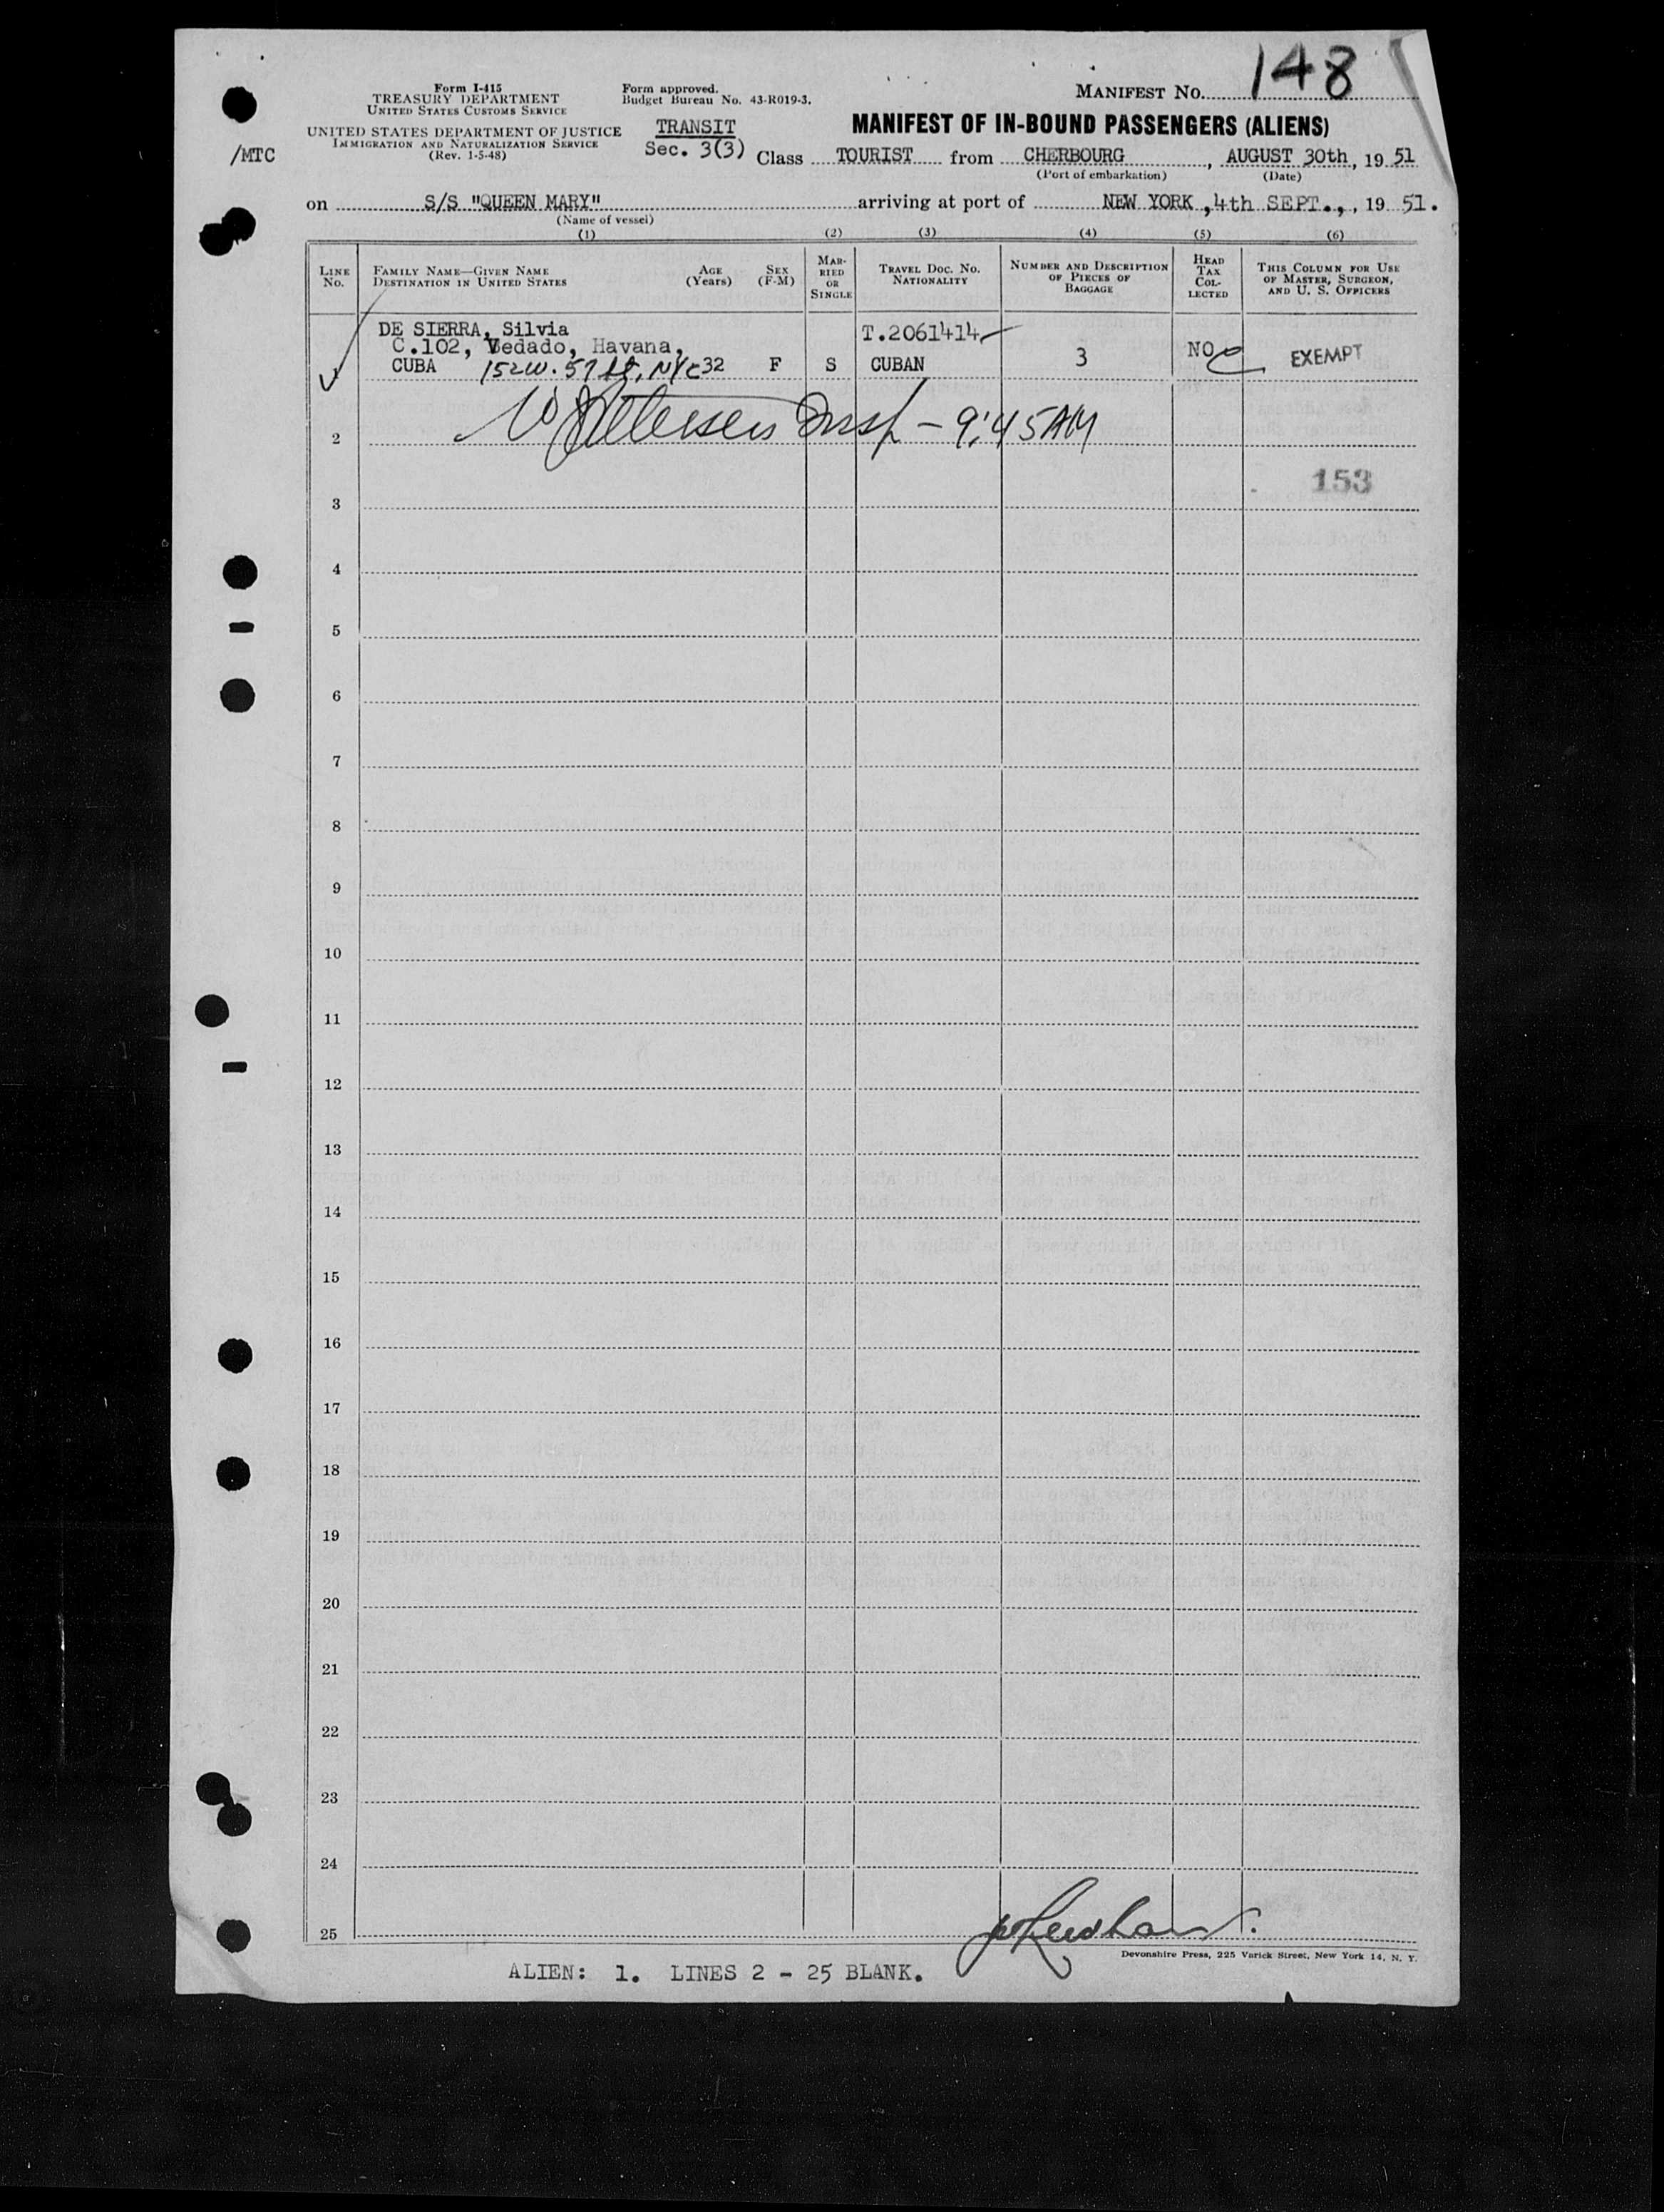 148
Form I-415
TREASURY DEPARTMENT
UNITED STATES CUSTOMS SERVICE
UNITED STATES DEPARTMENT OF JUSTICE
IMMIGRATION AND NATURALIZATION SERVICE
(Rev. 1-5-48)
/MTC
Form approved.
Budget Bureau No. 43-R019-3.
TRANSIT
Sec. 3(3)
MANIFEST NO.
MANIFEST OF IN-BOUND PASSENGERS (ALIENS)
Class TOURIST from CHERBOURG, AUGUST 30th, 19 51
(Port of embarkation) (Date)
on S/S "QUEEN MARY" arriving at port of NEW YORK, 4th SEPT., 19 51.
(Name of vessel)
(1) (2) (3) (4) (5) (6)
LINE NO.
FAMILY NAME—GIVEN NAME
DESTINATION IN UNITED STATES
AGE (Years)
SEX (F-M)
MARRIED OR SINGLE
TRAVEL DOC. NO.
NATIONALITY
NUMBER AND DESCRIPTION OF PIECES OF BAGGAGE
HEAD TAX COLLECTED
THIS COLUMN FOR USE OF MASTER, SURGEON, AND U. S. OFFICERS
DE SIERRA, Silvia T.2061414
C.102, Vedado, Havana,
CUBA 152 W. 57 St, NYC 32 F S CUBAN 3 NO EXEMPT
Insp - 9:45 AM
2
153
3
4
5
6
7
8
9
10
11
12
13
14
15
16
17
18
19
20
21
22
23
24
25
Devonshire Press, 225 Varick Street, New York 14, N. Y.
ALIEN: 1. LINES 2 - 25 BLANK.